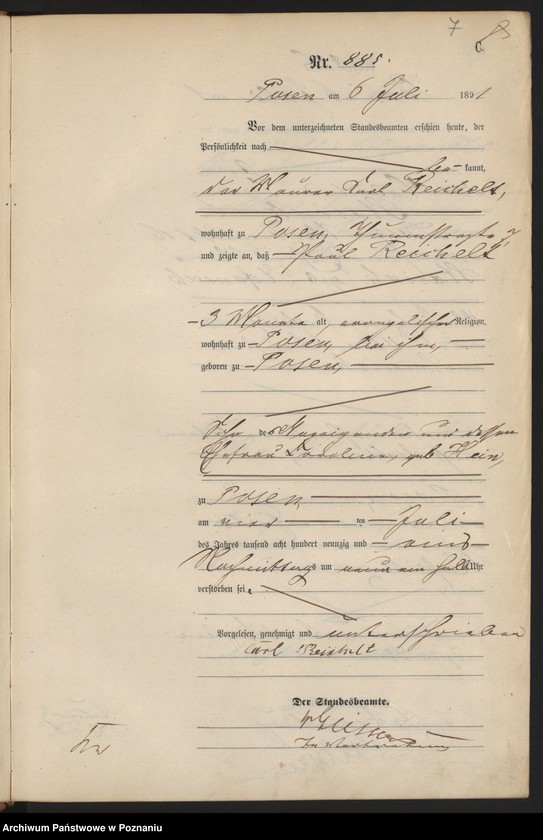 7 8
C.
Nr. 885.
Posen am 6 Juli 1891
Vor dem unterzeichneten Standesbeamten erschien heute, der
Persönlichkeit nach
be- kannt,
der Maurer Carl Reichelt,
wohnhaft zu Posen, Thurmstraße 7,
und zeigte an, daß Paul Reichelt
3 Monate alt, evangelischer Religion,
wohnhaft zu Posen, bei ihm,
geboren zu Posen,
Sohn des Anzeigenden und dessen
Ehefrau geb Hein,
zu Posen
am vier ten Juli
des Jahres tausend acht hundert neunzig und eins
Nachmittags um neun ein halb Uhr
verstorben sei.
Vorgelesen, genehmigt und unterschrieben
Carl Reichelt
Der Standesbeamte.
In Vertretung
Archiwum Państwowe w Poznaniu